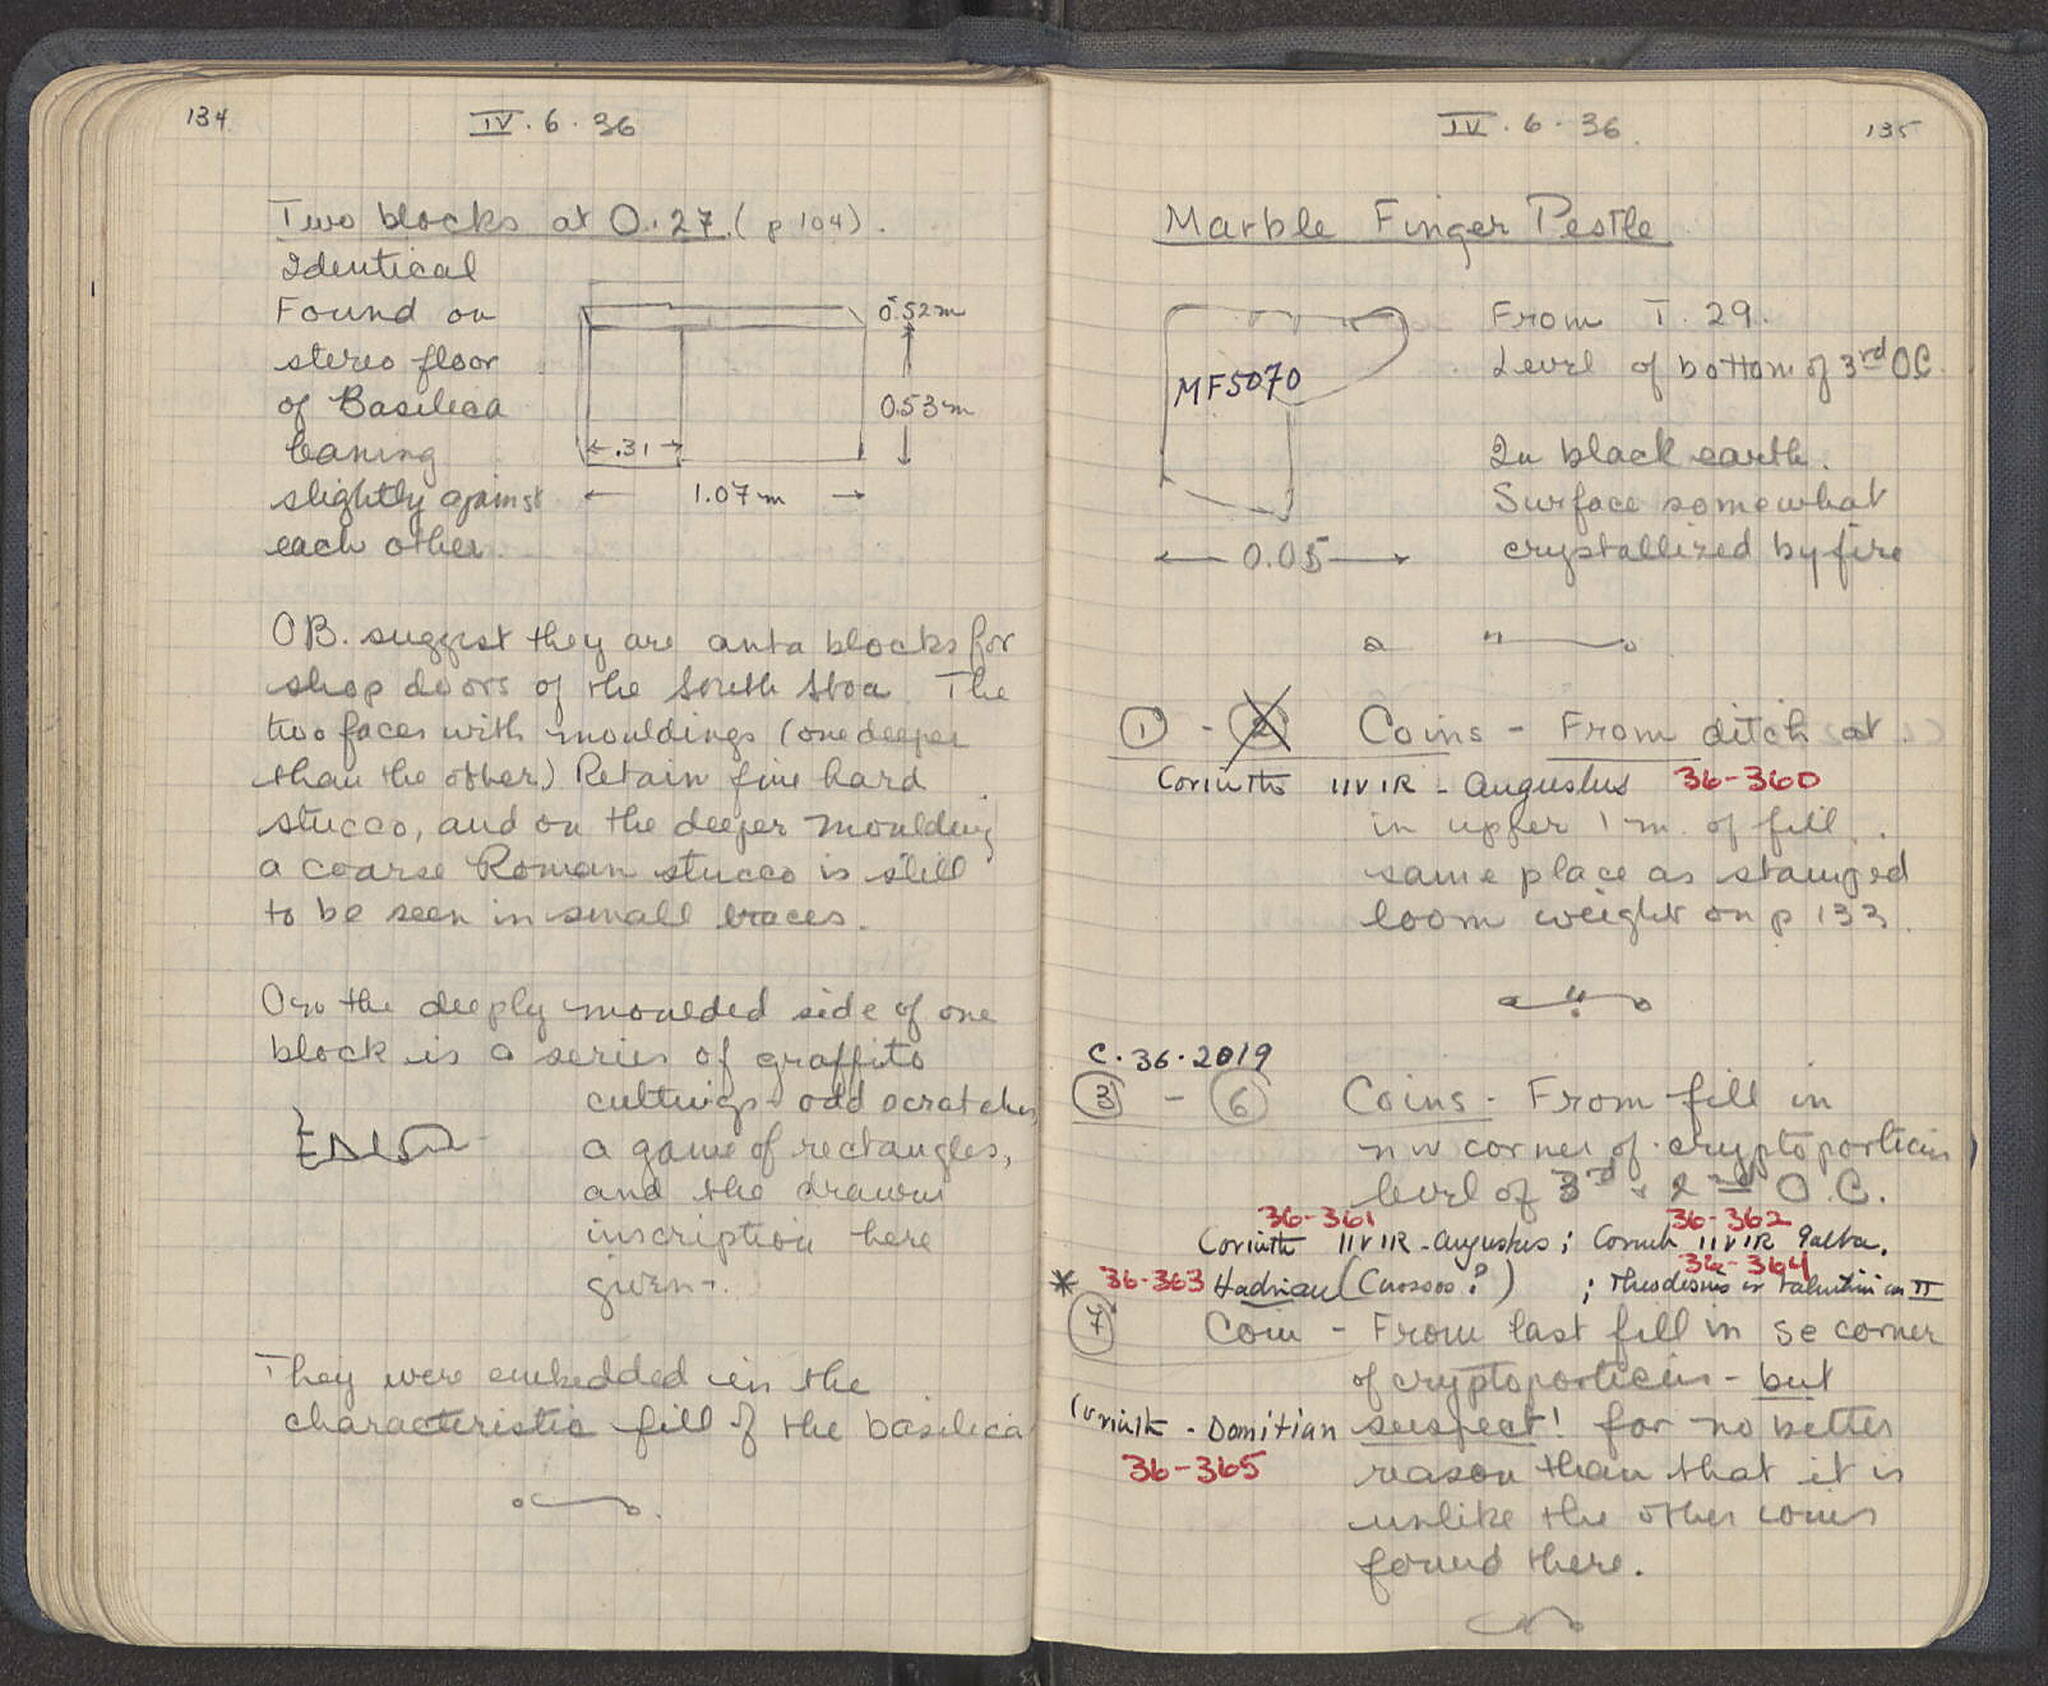 134
IV. 6. 36
Two blocks at O.27 (p 104).
Identical
Found on
stereo floor
of Basilica
leaning
slightly against
each other.
0.52m
0.53m
.31
1.07m
OB. suggest they are anta blocks for
shop doors of the South Stoa. The
two faces with mouldings (one deeper
than the other) Retain fine hard
stucco, and on the deeper moulding
a coarse Roman stucco is still
to be seen in small traces.
On the deeply moulded side of one
block is a series of graffito
cuttings - odd scratches,
a game of rectangles,
and the drawn
inscription here
given.
They were embedded in the
characteristic fill of the basilica
IV. 6. 36.
135
Marble Finger Pestle
MF5070
0.05
From T. 29.
Level of bottom of 3rd OC.
In black earth.
Surface somewhat
crystallized by fire
1 - 2 Coins - From ditch at
Corinth IIVIR - Augustus 36-360
in upper 1 m. of fill.
same place as stamped
loom weight on p 133.
C. 36. 2019
3 - 6 Coins - From fill in
nw corner of cryptoporticus,
level of 3rd + 2nd O.C.
36-361 36-362
Corinth IIVIR - Augustus; Corinth IIVIR Galba.
36-364
* 36-363 Hadrian (Cnossos?) ; Theodosius or Valentinian II
7 Coin - From last fill in se corner
of cryptoporticus - but
Corinth - Domitian suspect! for no better
36-365 reason than that it is
unlike the other coins
found there.